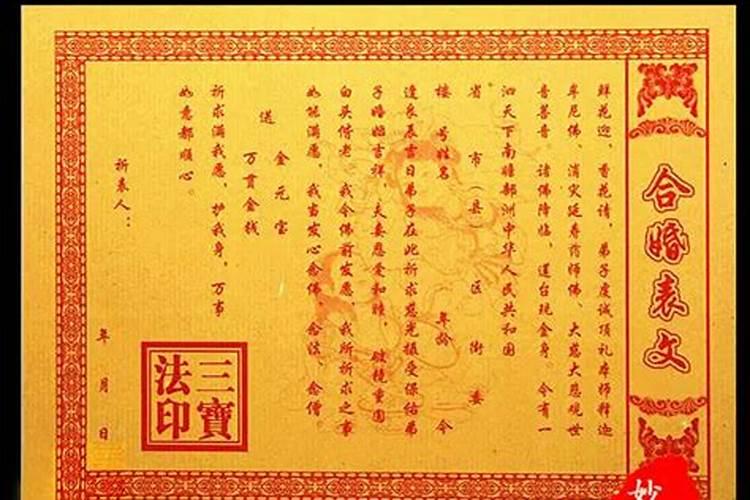 合婚表文
鲜花迎，香花请，弟子虔诚顶礼本师释迦
牟尼佛、消灾延寿药师佛、大慈大悲观世
音善音。诸佛降临，道台现金身。今有一
泗天下南瞻部洲中华人民共和国
省 市（县） 区 街 委
楼 号姓名 年龄 今
逢良辰吉日弟子在此祈求慈光摄受保佑弟
子婚姻吉祥，夫妻恩爱和睦，破镜重圆
白头偕老。我今佛前发愿，我所祈求之事
如能满愿，我当发心念佛、念法、念僧。
送 金元宝
万贯金钱
祈求满我愿，护我身，万事
如意都顺心。
祈表人：
年 月 日
三寶
法印
妙